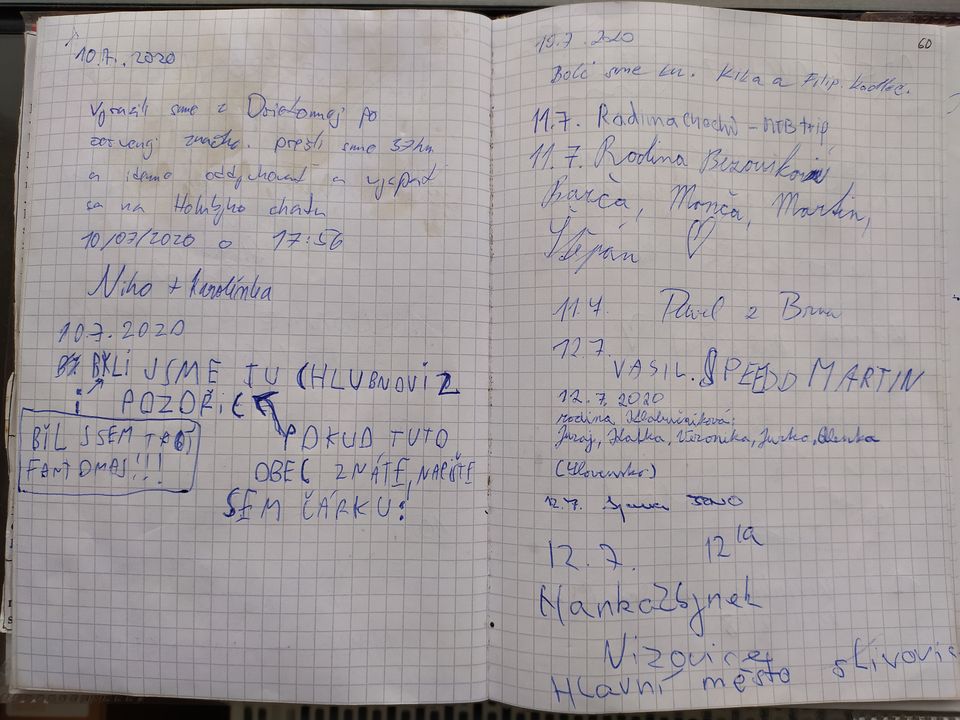 10.7. 2020
Vyrazili sme z Dzielomnej po
červenej značke. prešli sme 37km
a ideme oddychovať a vyspať
sa na Holubyho chatu
10/07/2020 o 17:56
Niho + Karolínka
10.7.2020
BYLI JSME TU (HLUBNOVI Z
POZOŘIC
BYL JSEM TADY
FANTOMAS!!!
POKUD TUTO
OBEC ZNÁTE, NAPIŠTE
SEM ČÁRKU:
60
19.7. 2020
Boli sme tu. Kika a Filip. Kadlec.
11.7. Radim a chachi - MTB trip
11.7. Rodina
Barča, Monča, Martin,
Štěpán
11.7. Pavel z Brna
12.7.
VASIL. SPEEDO MARTIN
12.7.2020
rodina Klobučníková:
Juraj, Katka, Veronika, Jurko, Elenka
(Slovensko)
12.7.
12.7. 12
Hanka Zbynek
Vizovice
Hlavní město slivovic